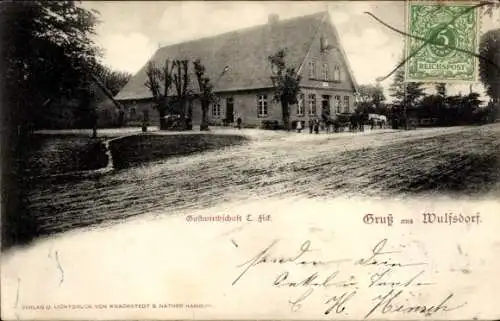 5
REICHSPOST
Gastwirthschaft C. Fick.
Gruß aus Wulfsdorf.
sendet dein
Onkel u. Tante
H. Hensch
VERLAG U. LICHTDRUCK VON KNACKSTEDT & NÄTHER HAMBURG.